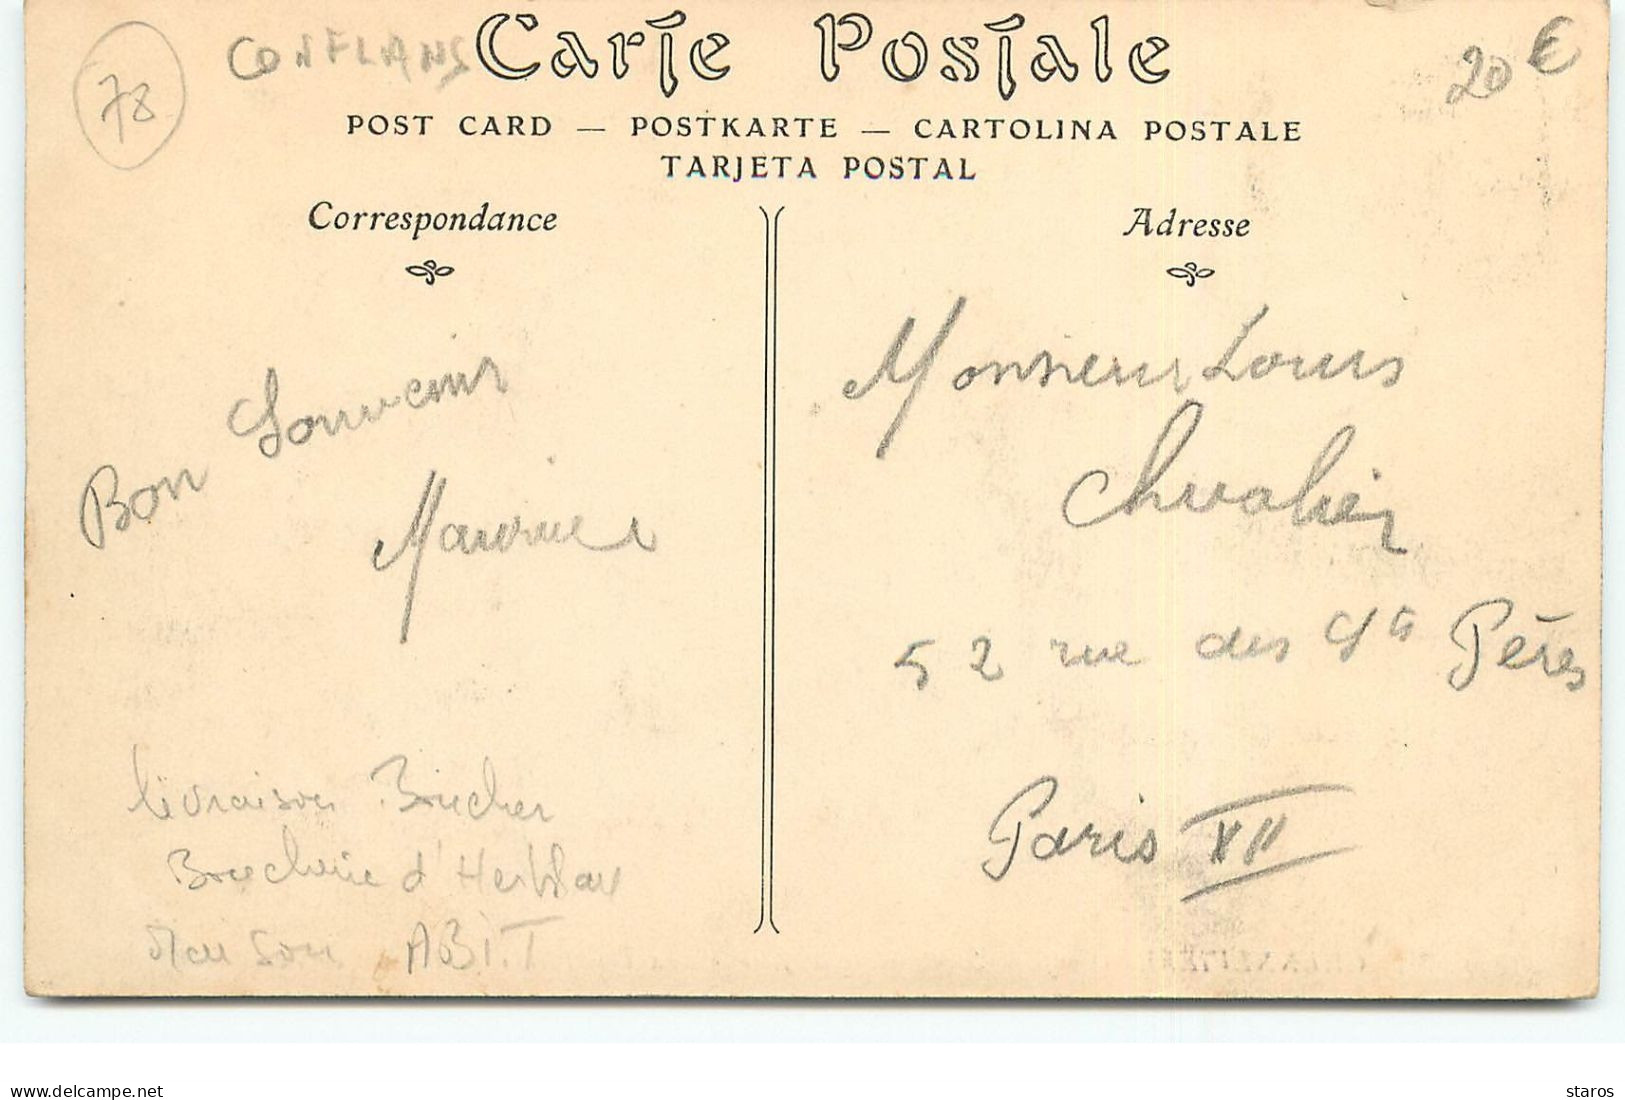 78
CONFLANS
20 €
Carte Postale
POST CARD — POSTKARTE — CARTOLINA POSTALE
TARJETA POSTAL
Correspondance
Bon Souvenir
Maurice
livraison Bucher
Boucherie d'Herblay
Maison ABIT
Adresse
Monsieur Louis
Chevalier
52 rue des Sts Pères
Paris VII
www.delcampe.net
staros